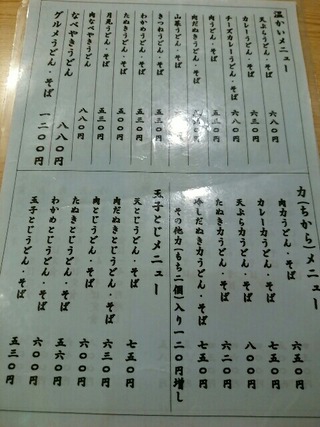 温かいメニュー
天ぷらうどん・そば 六八〇円
カレーうどん・そば 六三〇円
チーズカレーうどん・そば 六八〇円
肉うどん・そば
山菜うどん・そば
きつねうどん・そば 五三〇円
わかめうどん・そば 五三〇円
たぬきうどん・そば 五〇〇円
月見うどん・そば 五三〇円
肉なべやきうどん 八八〇円
なべやきうどん 八八〇円
グルメうどん・そば 一二〇〇円
力(ちから)メニュー
肉力うどん・そば 六五〇円
カレー力うどん・そば 七五〇円
天ぷら力うどん・そば 八〇〇円
たぬき力うどん・そば 六二〇円
冷しだぬき力うどん・そば 七五〇円
その他力(もち二個)入り一二〇円増し
玉子とじメニュー
天とじうどん・そば 七五〇円
肉だぬきとじうどん・そば
肉とじうどん・そば 六三〇円
たぬきとじうどん・そば 六〇〇円
わかめとじうどん・そば 五六〇円
玉子とじうどん・そば 五三〇円